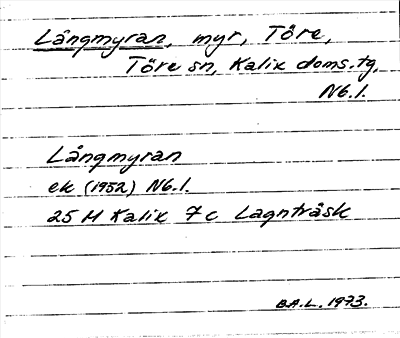 Långmyran, myr, Töre,
Töre sn, Kalix doms.tg,
Nb.l.
Långmyran
ek (1952) Nb.l.
25 M Kalix 7c Lagnträsk
B.A.L. 1973.